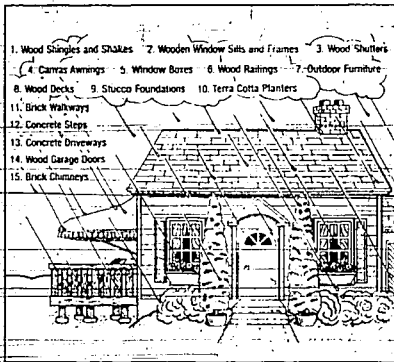 1. Wood Shingles and Shakes 2. Wooden Window Sills and Frames 3. Wood Shutters
4. Canvas Awnings 5. Window Boxes 6. Wood Railings 7. Outdoor Furniture
8. Wood Decks 9. Stucco Foundations 10. Terra Cotta Planters
11. Brick Walkways
12. Concrete Steps
13. Concrete Driveways
14. Wood Garage Doors
15. Brick Chimneys